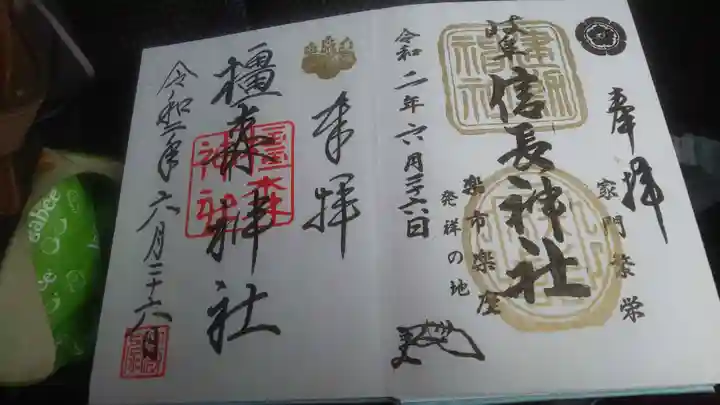 奉拝
家門繁栄
岐阜信長神社
楽市楽座
発祥の地
令和二年六月二十六日
奉拝
橿森神社
橿森
神社
令和二年六月二十六日